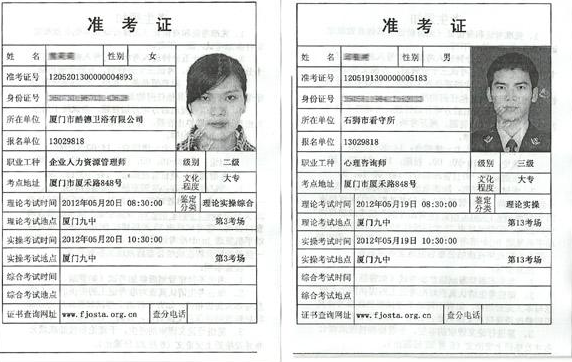 准考证
姓 名 性别 女
准考证号 1205201300000004893
身份证号
所在单位 厦门市酷德卫浴有限公司
报名单位 13029818
职业工种 企业人力资源管理师 级别 二级
考点地址 厦门市厦禾路848号 文化程度 大专
理论考试时间 2012年05月20日 08:30:00 鉴定分类 理论实操综合
理论考试地点 厦门九中 第3考场
实操考试时间 2012年05月20日 10:30:00
实操考试地点 厦门九中 第3考场
综合考试时间
综合考试地点
证书查询网址 www.fjosta.org.cn 查分电话
准考证
姓 名 性别 男
准考证号 1205191300000005183
身份证号
所在单位 石狮市看守所
报名单位 13029818
职业工种 心理咨询师 级别 三级
考点地址 厦门市厦禾路848号 文化程度 大专
理论考试时间 2012年05月19日 08:30:00 鉴定分类 理论实操
理论考试地点 厦门九中 第13考场
实操考试时间 2012年05月19日 10:30:00
实操考试地点 厦门九中 第13考场
综合考试时间
综合考试地点
证书查询网址 www.fjosta.org.cn 查分电话